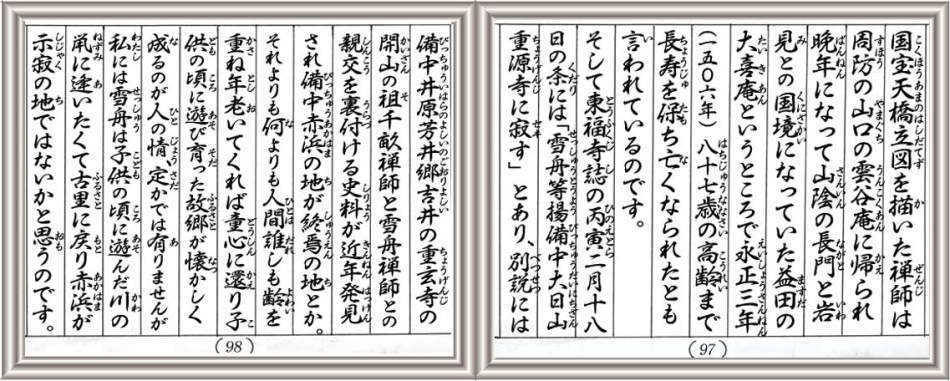 国宝天橋立図を描いた禅師は
周防の山口の雲谷庵に帰られ
晩年になって山陰の長門と岩
見との国境になっていた益田の
大喜庵というところで永正三年
(一五〇六年)八十七歳の高齢まで
長寿を保ち亡くなられたとも
言われているのです。
そして東福寺誌の丙寅二月十八
日の条には「雪舟等揚備中大日山
重源寺に寂す」とあり、別説には
(97)
備中井原芳井郷吉井の重玄寺の
開山の祖千畝禅師と雪舟禅師との
親交を裏付ける史料が近年発見
され備中赤浜の地が終焉の地とか。
それよりも何よりも人間誰しも齢を
重ね年老いてくれば童心に還り子
供の頃に遊び育った故郷が懐かしく
成るのが人の情定かでは有りませんが
私には雪舟は子供の頃に遊んだ川の
鼡に逢いたくて古里に戻り赤浜が
示寂の地ではないかと思うのです。
(98)